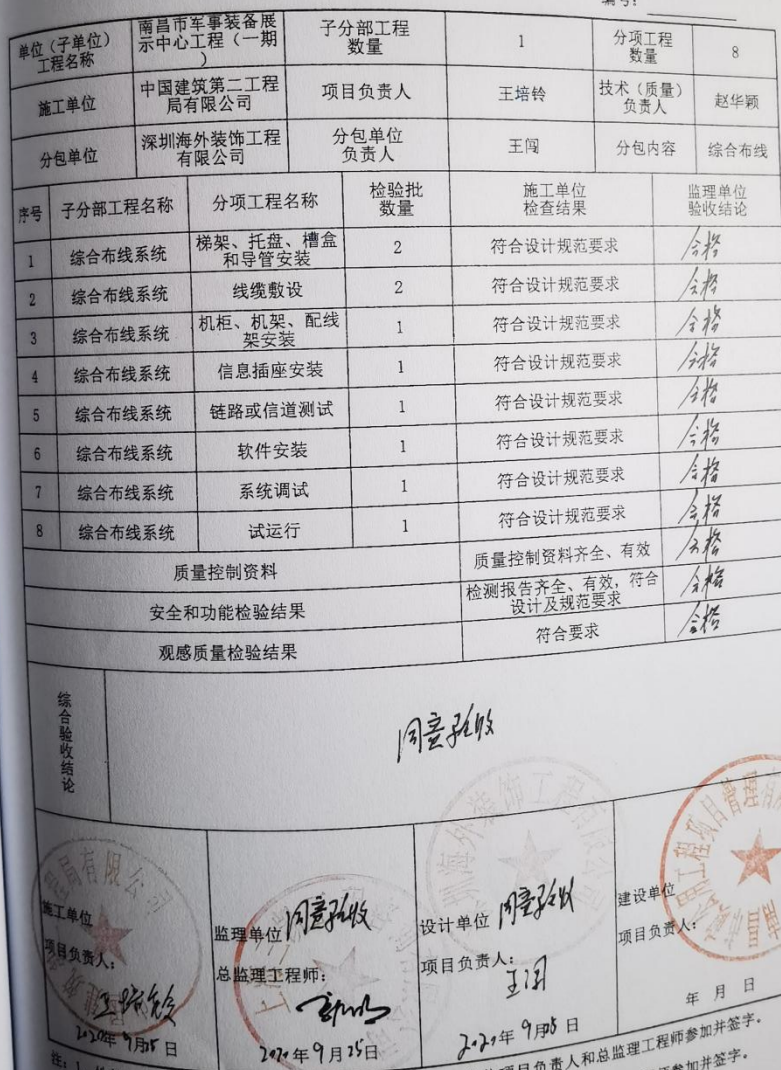 编号:
单位(子单位)
工程名称
南昌市军事装备展
示中心工程(一期
)
子分部工程
数量
1
分项工程
数量
8
施工单位
中国建筑第二工程
局有限公司
项目负责人
王培铃
技术(质量)
负责人
赵华颖
分包单位
深圳海外装饰工程
有限公司
分包单位
负责人
王闯
分包内容
综合布线
序号 子分部工程名称 分项工程名称
检验批
数量
施工单位
检查结果
监理单位
验收结论
1 综合布线系统
梯架、托盘、槽盒
和导管安装
2 符合设计规范要求 合格
2 综合布线系统 线缆敷设 2 符合设计规范要求 合格
3 综合布线系统
机柜、机架、配线
架安装
1 符合设计规范要求 合格
4 综合布线系统 信息插座安装 1 符合设计规范要求 合格
5 综合布线系统 链路或信道测试 1 符合设计规范要求 合格
6 综合布线系统 软件安装 1 符合设计规范要求 合格
7 综合布线系统 系统调试 1 符合设计规范要求 合格
8 综合布线系统 试运行 1 符合设计规范要求 合格
质量控制资料 质量控制资料齐全、有效 合格
安全和功能检验结果
检测报告齐全、有效,符合
设计及规范要求
合格
观感质量检验结果 符合要求 合格
综合验收结论
同意验收
局有限公司
施工单位
项目负责人:
王培铃
2020年9月25日
监理单位 同意验收
总监理工程师:
2020年9月25日
圳海外装饰工程有限公司
设计单位 同意验收
项目负责人:
王闯
2020年9月25日
工程项目管理有
建设单位
项目负责人:
年 月 日
注:1
项目负责人和总监理工程师参加并签字。
参加并签字。